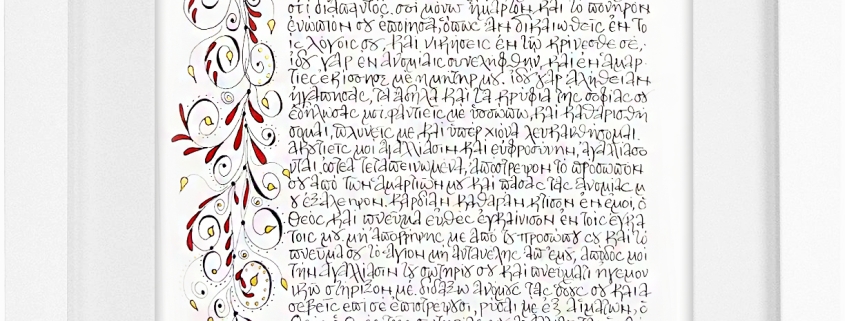 στί διαπαντός. σοὶ μόνω ἥμαρτον καὶ τὸ πονηρὸν
ἐνώπιόν σου ἐποίησα, ὅπως ἂν δικαιωθεῖς ἐν το
ῖς λόγοις σου, καὶ νικήσεις ἐν τῶ κρίνεσθέ σε,
ἰδοὺ γὰρ ἐν ἀνομίαις συνελήφθην, καὶ ἐν ἁμαρ
τίες ἐκίσσησέ με ἡ μήτηρ μου. ἰδοὺ γὰρ ἀλήθειαν
ἠγάπησας, τὰ ἄδηλα καὶ τὰ κρύφια τῆς σοφίας σου
ἐδήλωσάς μοι. ῥαντιεῖς με ὑσσώπω, καὶ καθαρισθή
σομαι, πλυνεῖς με καὶ ὑπὲρ χιόνα λευκανθήσομαι.
ἀκουτιεῖς μοι ἀγαλλίασιν καὶ εὐφροσύνην, ἀγαλλιάσο
νται ὀστέα τεταπεινωμένα, ἀπόστρεψον τὸ πρόσωπόν
σου ἀπὸ τῶν ἁμαρτιῶν μου καὶ πάσας τὰς ἀνομίας μ
ου ἐξάλειψον. καρδίαν καθαρὰν κτίσον ἐν ἐμοί, ὁ
θεός, καὶ πνεῦμα εὐθὲς ἐγκαίνισον ἐν τοῖς ἐγκά
τοις μου. μὴ ἀποῤῥίψης με ἀπὸ τοῦ προσώπου σου καὶ τὸ
πνεῦμά σου τὸ ἅγιον μὴ ἀντανέλης ἀπ' ἐμοῦ, ἀπόδος μοι
τὴν ἀγαλλίασιν τοῦ σωτηρίου σου καὶ πνεύματι ἡγεμον
ικῶ στήριξόν με. διδάξω ἀνόμους τὰς ὁδούς σου καὶ ἀ
σεβεῖς ἐπὶ σὲ ἐπιστρέψουσι, ῥῦσαί με ἐξ αἱμάτων, ὁ